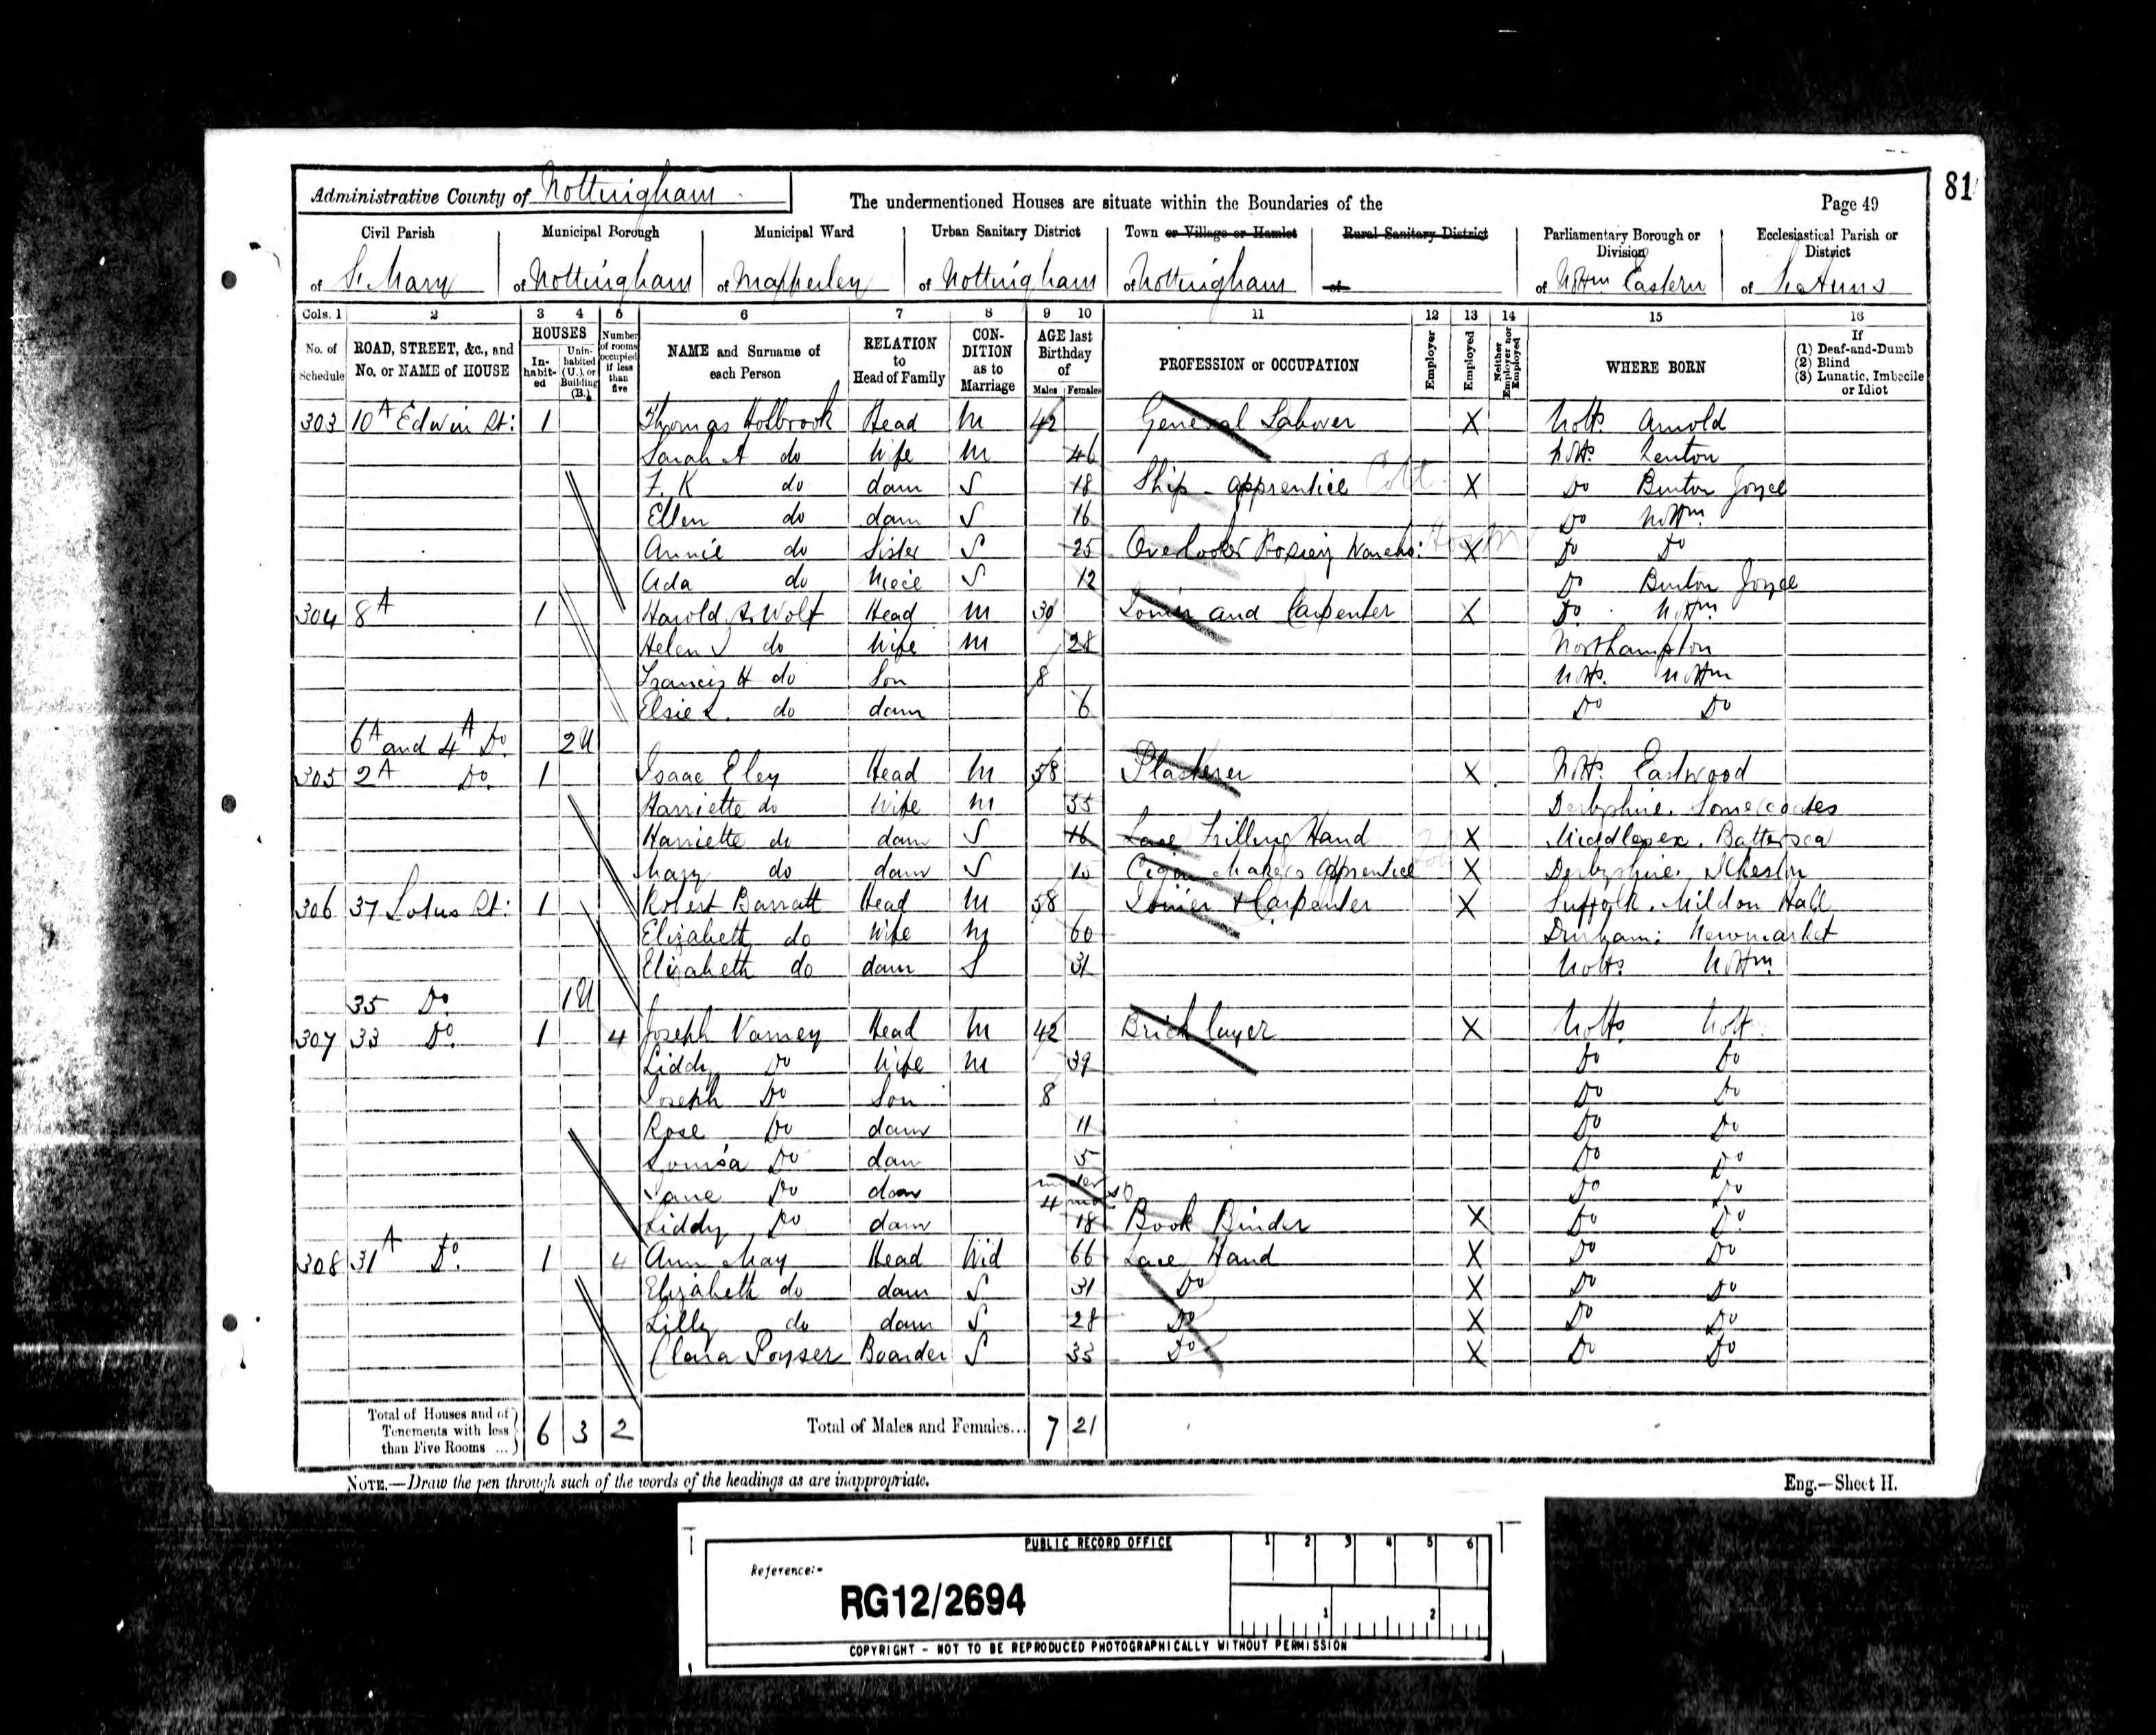 81
Administrative County of Nottingham
The undermentioned Houses are situate within the Boundaries of the
Page 49
Civil Parish
Municipal Borough
Municipal Ward
Urban Sanitary District
Town or Village or Hamlet
Rural Sanitary District
Parliamentary Borough or Division
Ecclesiastical Parish or District
of St Mary
of Nottingham
of Mapperley
of Nottingham
of Nottingham
of
of Nottm Eastern
of St Anns
Cols. 1 2 3 4 5 6 7 8 9 10 11 12 13 14 15 16
No. of Schedule
ROAD, STREET, &c., and No. or NAME of HOUSE
HOUSES
In-habit-ed
Unin-habited (U.), or Building (B.)
Number of rooms occupied if less than five
NAME and Surname of each Person
RELATION to Head of Family
CON-DITION as to Marriage
AGE last Birthday of
Males Females
PROFESSION or OCCUPATION
Employer
Employed
Neither Employer nor Employed
WHERE BORN
If (1) Deaf-and-Dumb (2) Blind (3) Lunatic, Imbecile or Idiot
303 10A Edwin St: 1 Thomas Holbrook Head M 42 General Labover X Notts. Arnold
Sarah A do Wife M 46 Notts. Lenton
F. K do daur S 18 Ship - apprentice X Do Burton Joyce
Ellen do daur S 16 Do Nottm
Annie do Sister S 25 Overlooker Hosiery Wareho: X Do Do
Ada do Niece S 12 Do Burton Joyce
304 8A 1 Harold A. Wolf Head M 30 Joiner and Carpenter X Do Nottm
Helen J do Wife M 28 Northampton
Francis H do Son 8 Notts. Nottm
Elsie L. do daur 6 Do Do
6A and 4A Do. 2U
305 2A Do. 1 Isaac Eley Head M 58 Plasterer X Notts. Eastwood
Harriette do Wife M 55 Derbyshire. Somecoates
Harriette do daur S 16 Lace Frilling Hand X Middlesex. Battersea
Mary do daur S 15 Cigar Makers apprentice X Derbyshire. Ilkeston
306 37 Lotus St: 1 Robert Barratt Head M 58 Joiner & Carpenter X Suffolk. Mildon Hall
Elizabeth do Wife M 60 Durham: Newmarket
Elizabeth do daur S 31 Notts Nottm
35 Do. 1U
307 33 Do. 1 4 Joseph Varney Head M 42 Brick layer X Notts. Nott.
Liddy Do Wife M 39 Do Do
Joseph Do Son 8 Do Do
Rose Do daur 11 Do Do
Louisa Do dau 5 Do Do
Jane Do daur under 4 mos Do Do
Liddy Do daur 18 Book Binder X Do Do
308 31A Do. 1 4 Ann May Head Wid 66 Lace Hand X Do Do
Elizabeth do daur S 31 Do X Do Do
Lilly do daur S 28 Do X Do Do
Clara Poyser Boarder S 33 Do X Do Do
Total of Houses and of Tenements with less than Five Rooms ... 6 3 2
Total of Males and Females... 7 21
NOTE.—Draw the pen through such of the words of the headings as are inappropriate.
Eng.—Sheet H.
PUBLIC RECORD OFFICE
1 2 3 4 5 6
Reference:-
RG12/2694
1 2
COPYRIGHT - NOT TO BE REPRODUCED PHOTOGRAPHICALLY WITHOUT PERMISSION